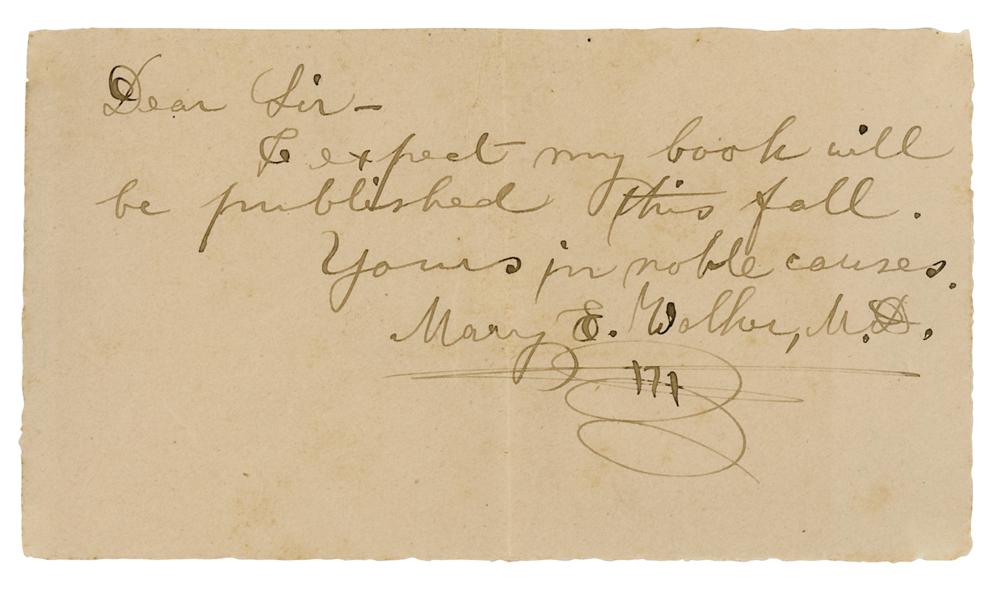 Dear Sir—
I expect my book will
be published this fall.
Yours in noble causes.
Mary E. Walker, M.D.